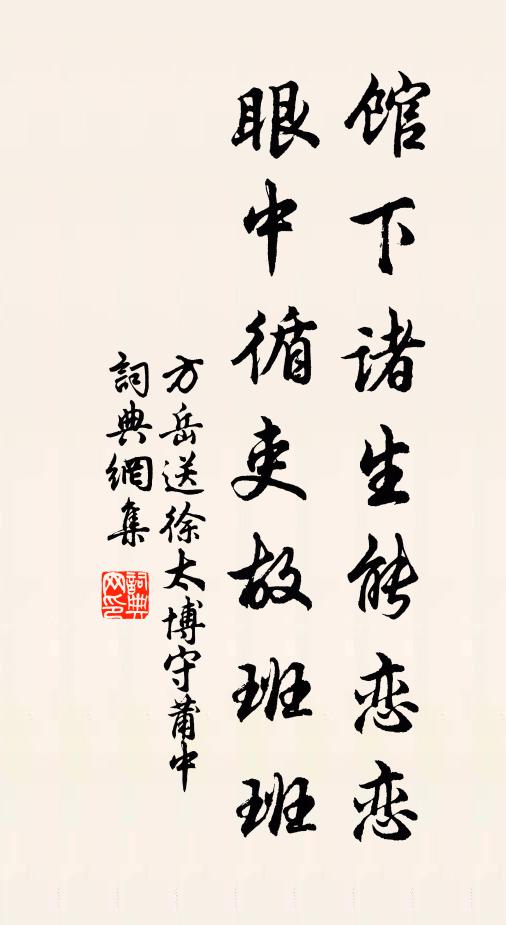 馆下诸生能恋恋
眼中循吏故班班
方岳送徐太博守莆中
詞典網集
詞典網印